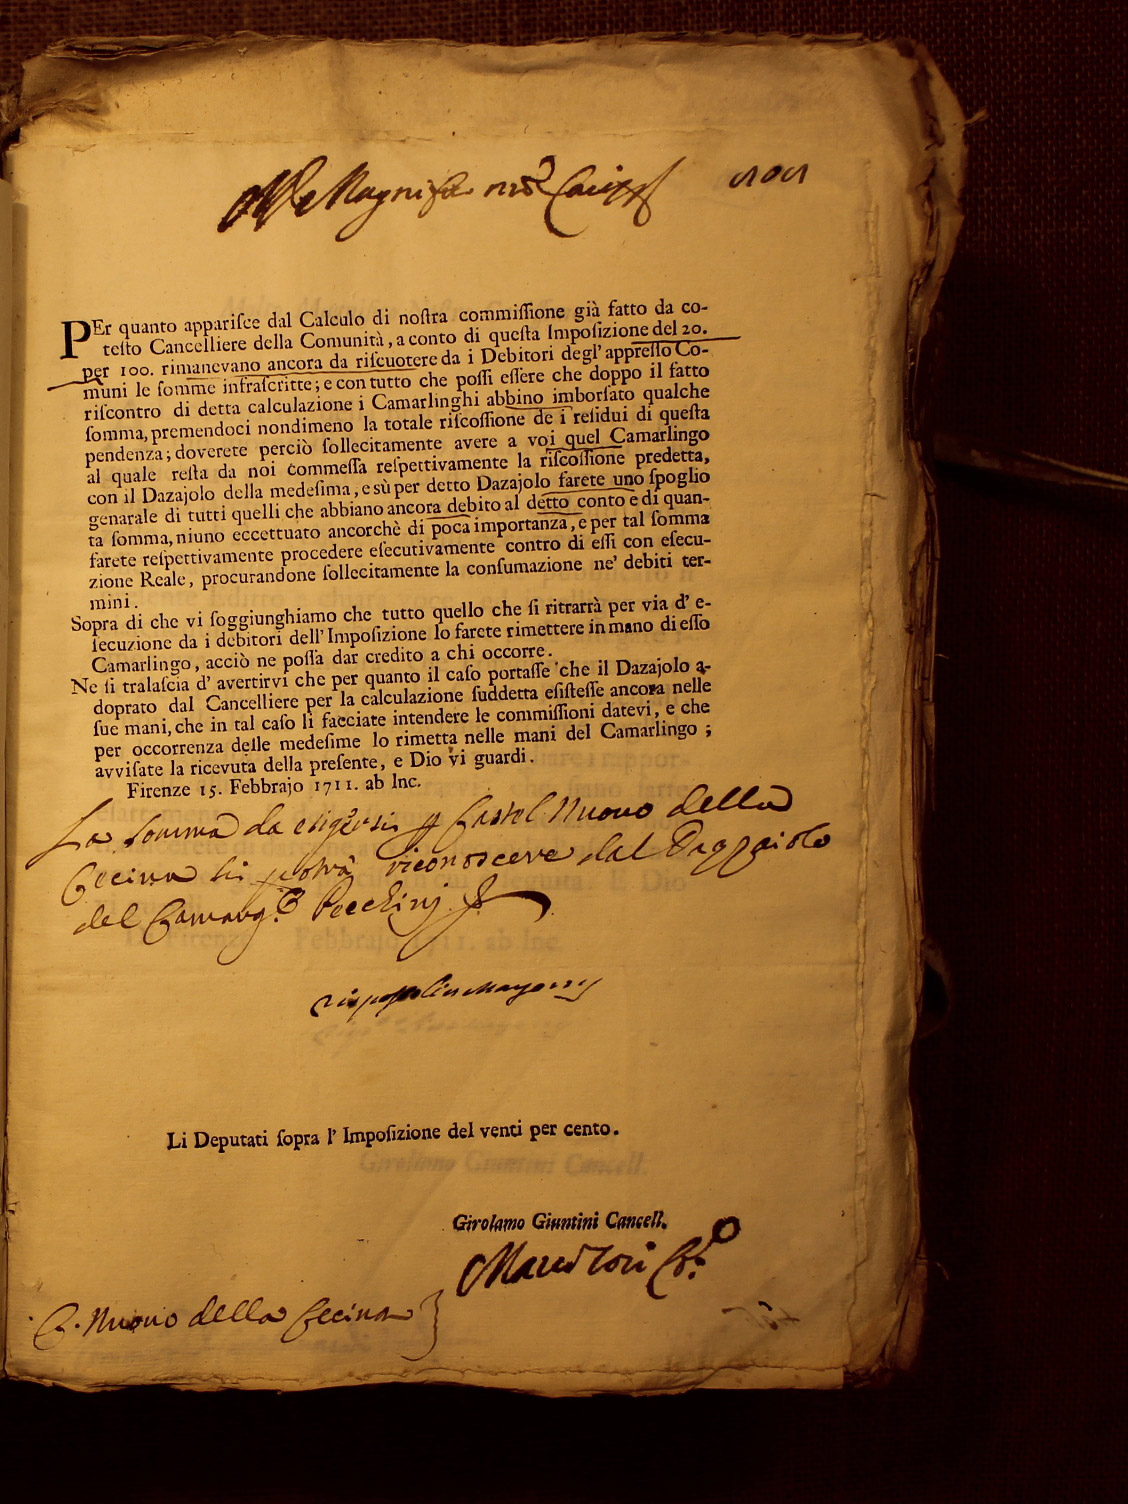 PEr quanto apparisce dal Calculo di nostra commissione già fatto da co-
testo Cancelliere della Comunità, a conto di questa Imposizione del 20.
per 100. rimanevano ancora da riscuotere da i Debitori degl' appresso Co-
muni le somme infrascritte; e con tutto che possi essere che doppo il fatto
riscontro di detta calculazione i Camarlinghi abbino imborsato qualche
somma, premendoci nondimeno la totale riscossione de i residui di questa
pendenza; doverete perciò sollecitamente avere a voi quel Camarlingo
al quale resta da noi commessa respettivamente la riscossione predetta,
con il Dazajolo della medesima, e sù per detto Dazajolo farete uno spoglio
genarale di tutti quelli che abbiano ancora debito al detto conto e di quan-
ta somma, niuno eccettuato ancorchè di poca importanza, e per tal somma
farete respettivamente procedere esecutivamente contro di essi con esecu-
zione Reale, procurandone sollecitamente la consumazione ne' debiti ter-
mini.
Sopra di che vi soggiunghiamo che tutto quello che si ritrarrà per via d' e-
secuzione da i debitori dell' Imposizione lo farete rimettere in mano di esso
Camarlingo, acciò ne possa dar credito a chi occorre.
Ne si tralascia d' avertirvi che per quanto il caso portasse che il Dazajolo a-
doprato dal Cancelliere per la calculazione suddetta esistesse ancora nelle
sue mani, che in tal caso li facciate intendere le commissioni datevi, e che
per occorrenza delle medesime lo rimetta nelle mani del Camarlingo;
avvisate la ricevuta della presente, e Dio vi guardi.
Firenze 15. Febbrajo 1711. ab Inc.
La somma da esigersi p Castel Nuovo della
Cecina si potrà riconoscere dal Dazzaiolo
del Camarg.º Pecchinj
Li Deputati sopra l' Imposizione del venti per cento.
Girolamo Giuntini Cancell.
C. Nuovo della Cecina